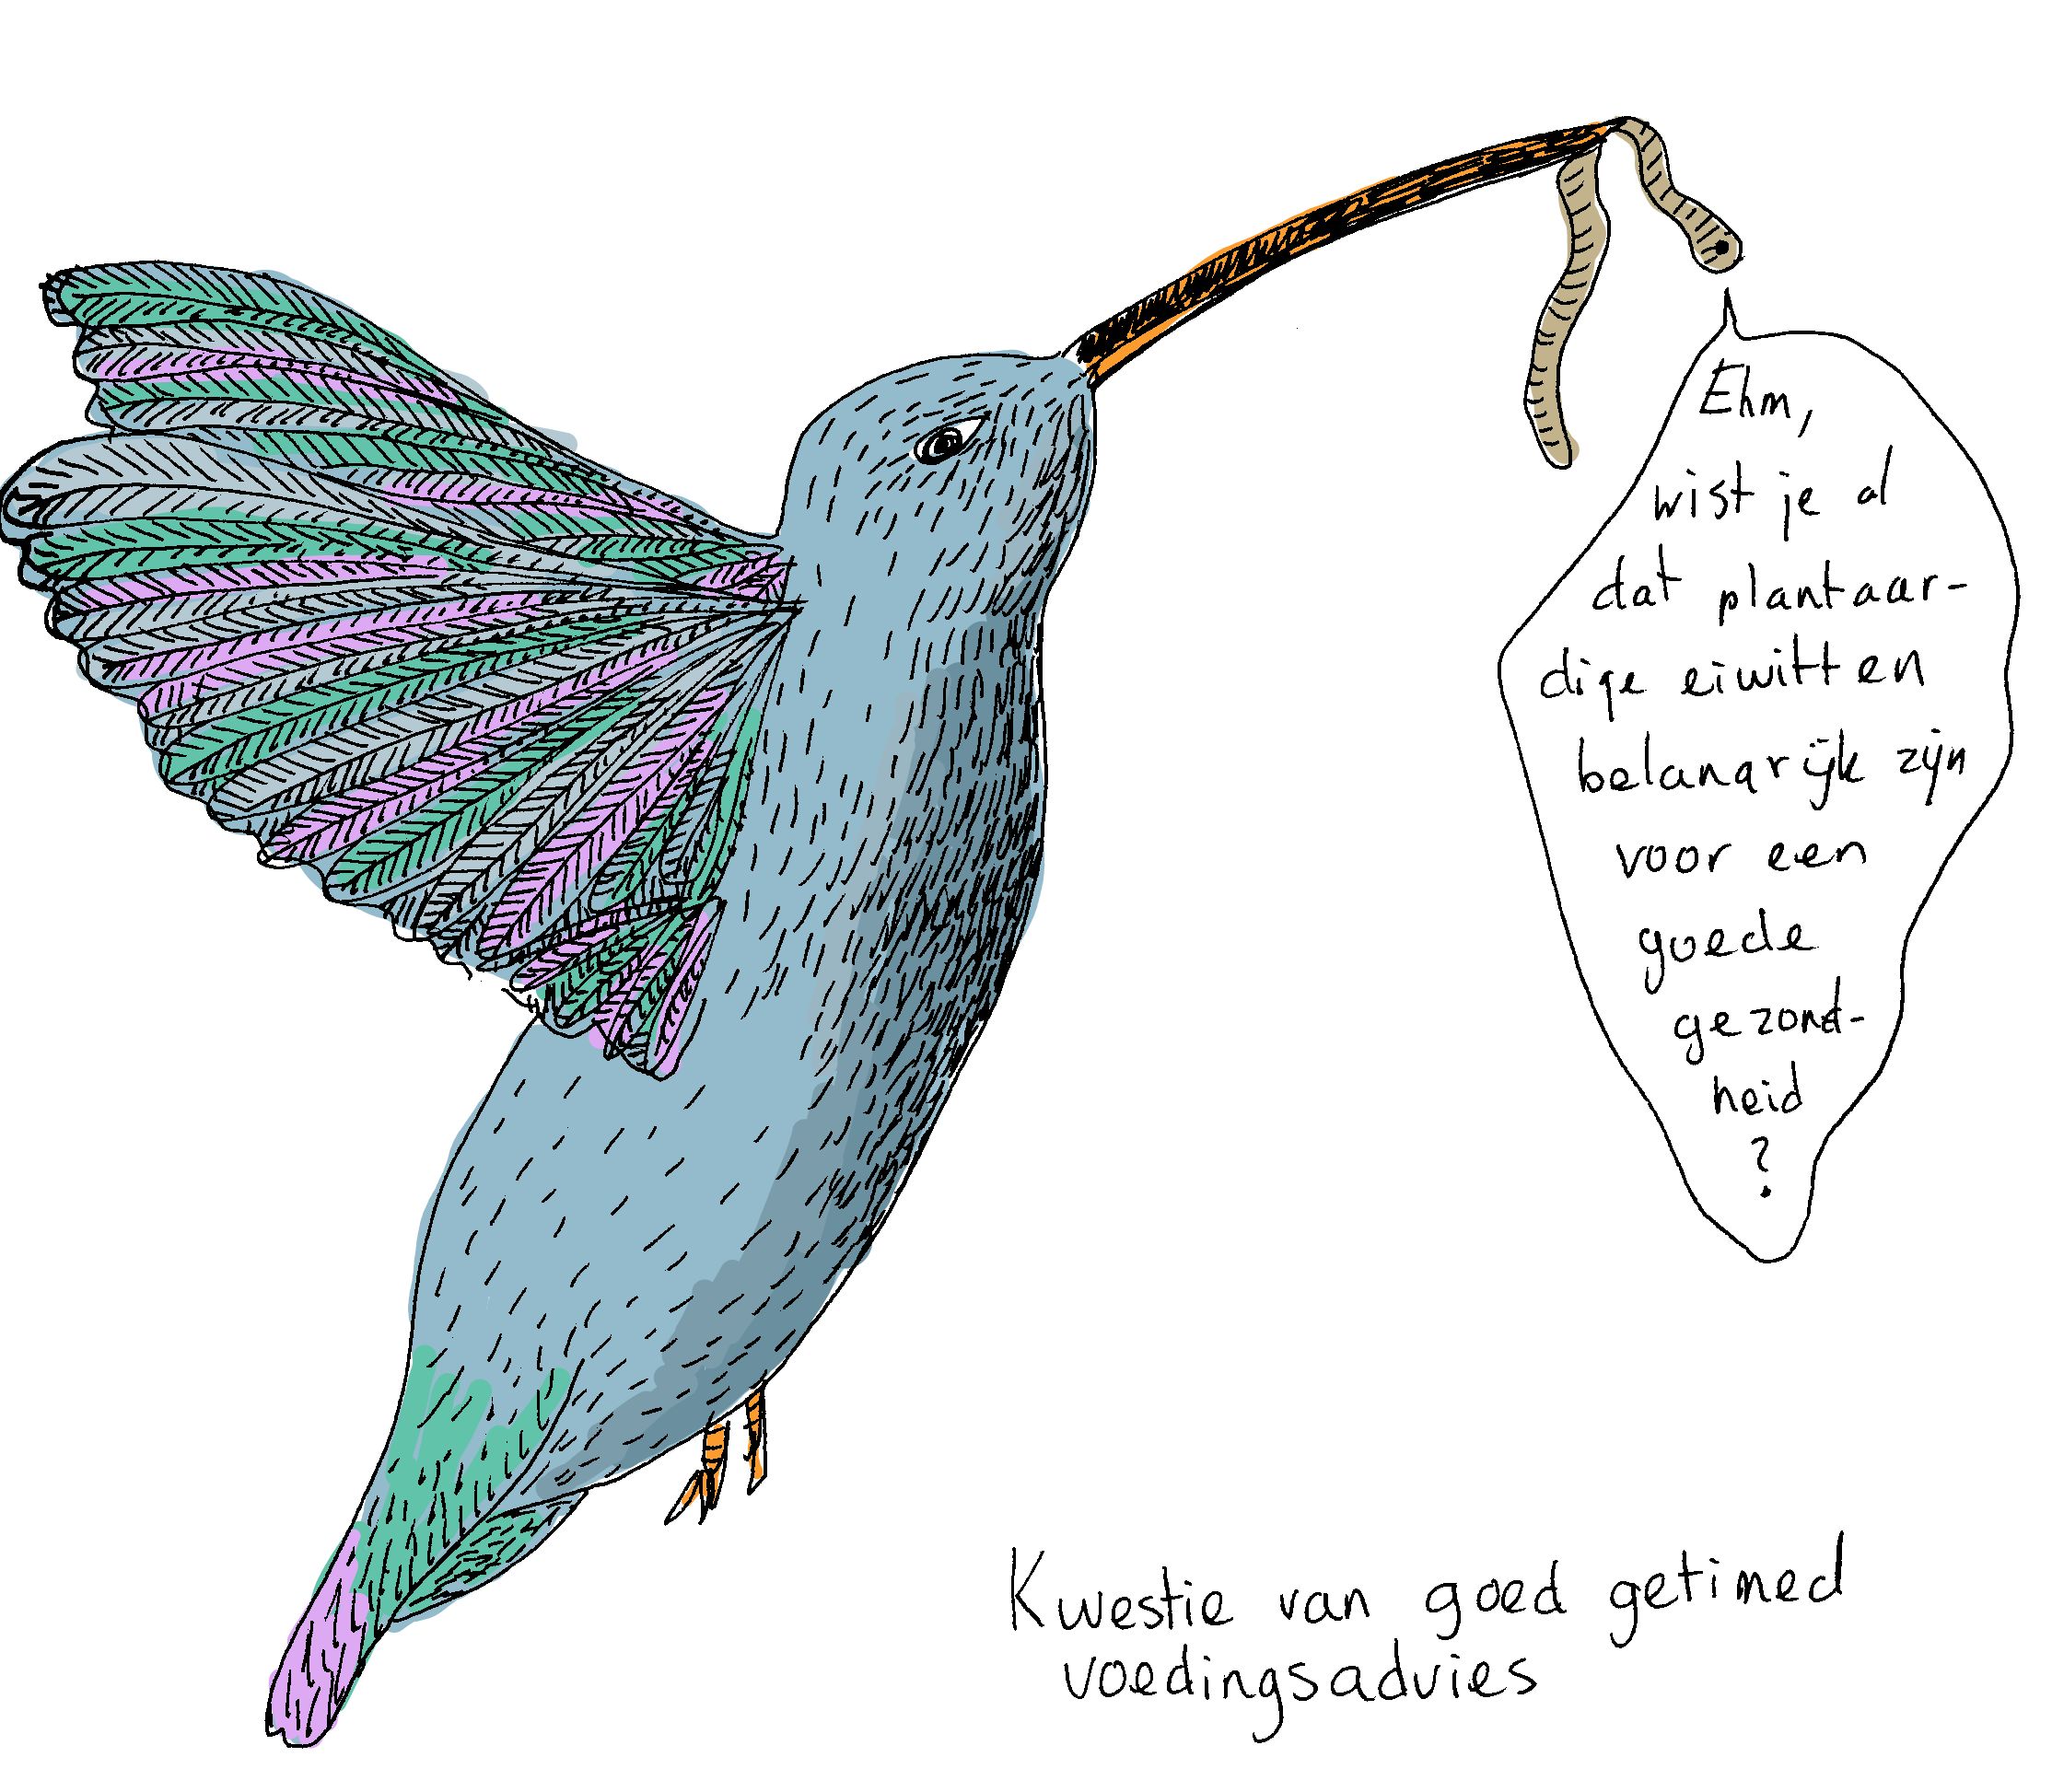 Ehm,
wist je al
dat plantaar-
dige eiwitten
belangrijk zijn
voor een
goede
gezond-
heid
?
Kwestie van goed getimed
voedingsadvies